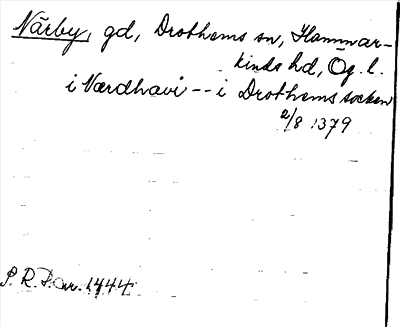 Närby, gd, Drothems sn, Hammar-
kinds hd, Ög. l.
i Nærdhavi -- i Drothems socken
2/8 1379
S. R. P. nr. 1444.